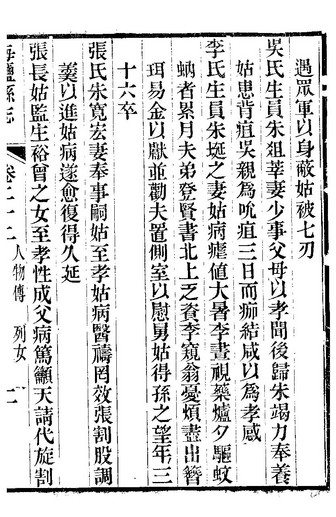 遇眾軍以身蔽姑被七刃
吳氏生員朱葅莘妻少事父母以孝聞後歸朱竭力奉養
姑患背疽吳親為吮疽三日而痂結咸以為孝感
李氏生員朱埏之妻姑病瘧值大暑李晝視藥爐夕驅蚊
蚋者累月夫弟登賢書北上乏資李窺翁憂煩盡出簪
珥易金以獻並勸夫置側室以慰舅姑得孫之望年三
十六卒
張氏朱寬宏妻奉事嗣姑至孝姑病醫禱罔效張割股調
羹以進姑病遂愈復得久延
張長姑監生裕曾之女至孝性成父病篤籲天請代旋割
海鹽縣志 卷二十二 人物傳 列女